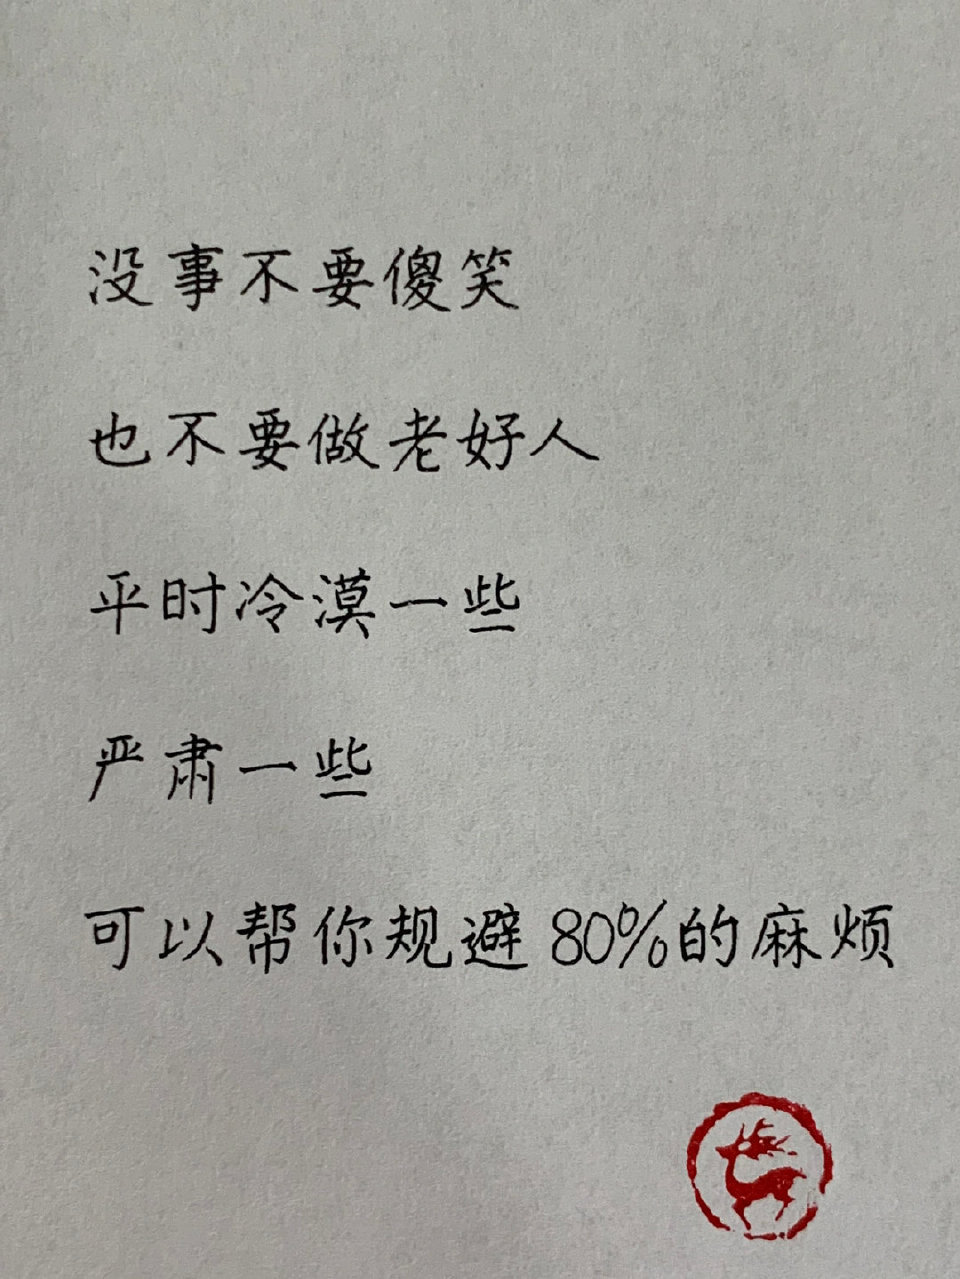 没事不要傻笑
也不要做老好人
平时冷漠一些
严肃一些
可以帮你规避80%的麻烦